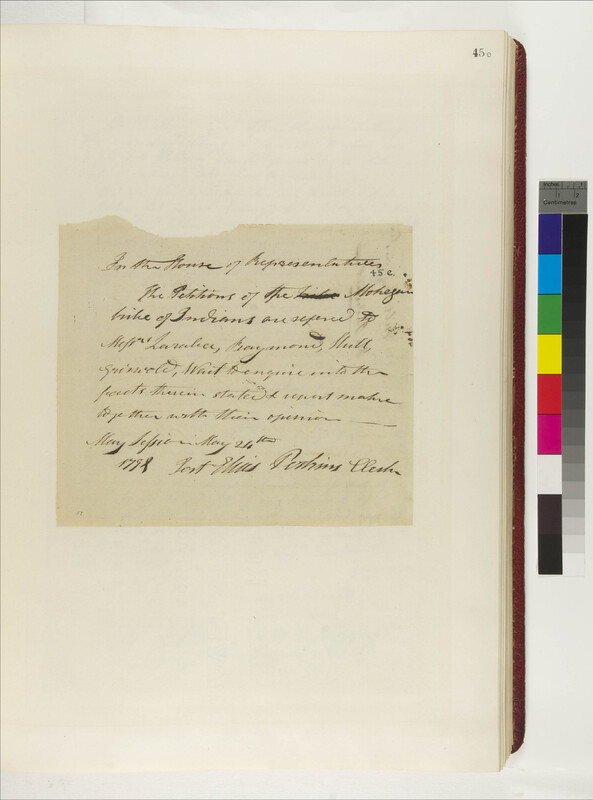 45 e
In the House of Representatives
45 e.
The Petitions of the tribe Mohegan
tribe of Indians are refered to
Messrs Larabee, Raymond, Hull,
Griswold, Wait to enquire into the
facts therein stated & report make
together with their opinion
May Session May 24th
179 Test Elias Perkins Clerk
Inches
Centimetres
1
2